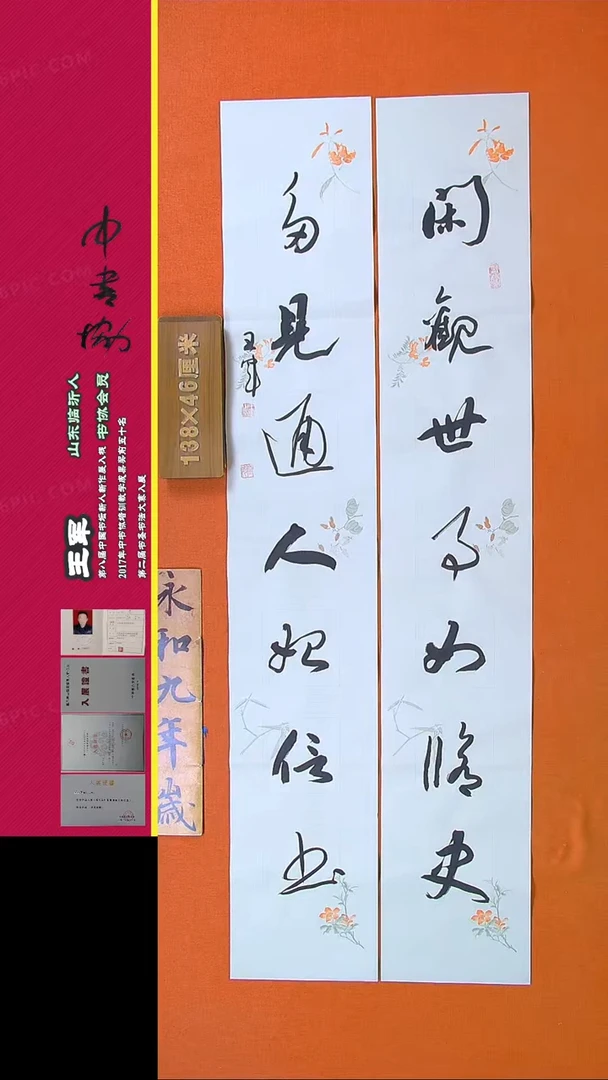 閑觀世事如脩史
多見通人始信書
王军
138×46厘米
永和九年歲
中書協
山东临沂人 书协会员
王军
第八届中国书坛新人新作展入展
2017年中书协培训教学成果展前五十名
第二届书圣书法大赛入展
入展證書